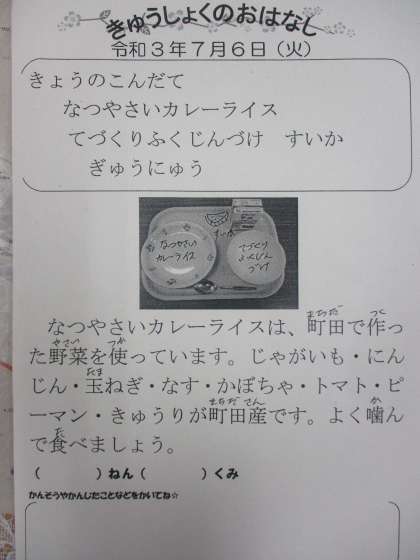 きゅうしょくのおはなし
令和3年7月6日(火)
きょうのこんだて
なつやさいカレーライス
てづくりふくじんづけ　すいか
ぎゅうにゅう
すいか
なつやさい
カレーライス
てづくり
ふくじん
づけ
なつやさいカレーライスは、町田で作っ
まちだ　つく
た野菜を使っています。じゃがいも・にん
やさい　つか
じん・玉ねぎ・なす・かぼちゃ・トマト・ピ
たま
ーマン・きゅうりが町田産です。よく噛ん
まちださん　か
で食べましょう。
た
(　　　)ねん(　　　)くみ
かんそうやかんじたことなどをかいてね☆